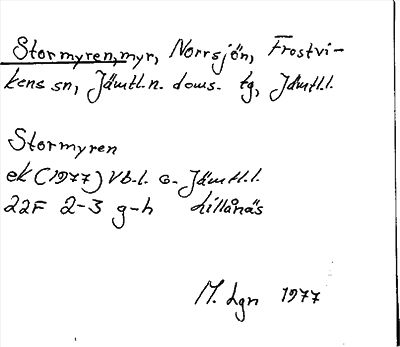 Stormyren, myr, Norrsjön, Frostvi-
kens sn, Jämtl.n. doms. tg, Jämtl.l.
Stormyren
ek (1977) Vb.l. o. Jämtl.l.
22F 2-3 g-h Lillånäs
M. Lgn 1977